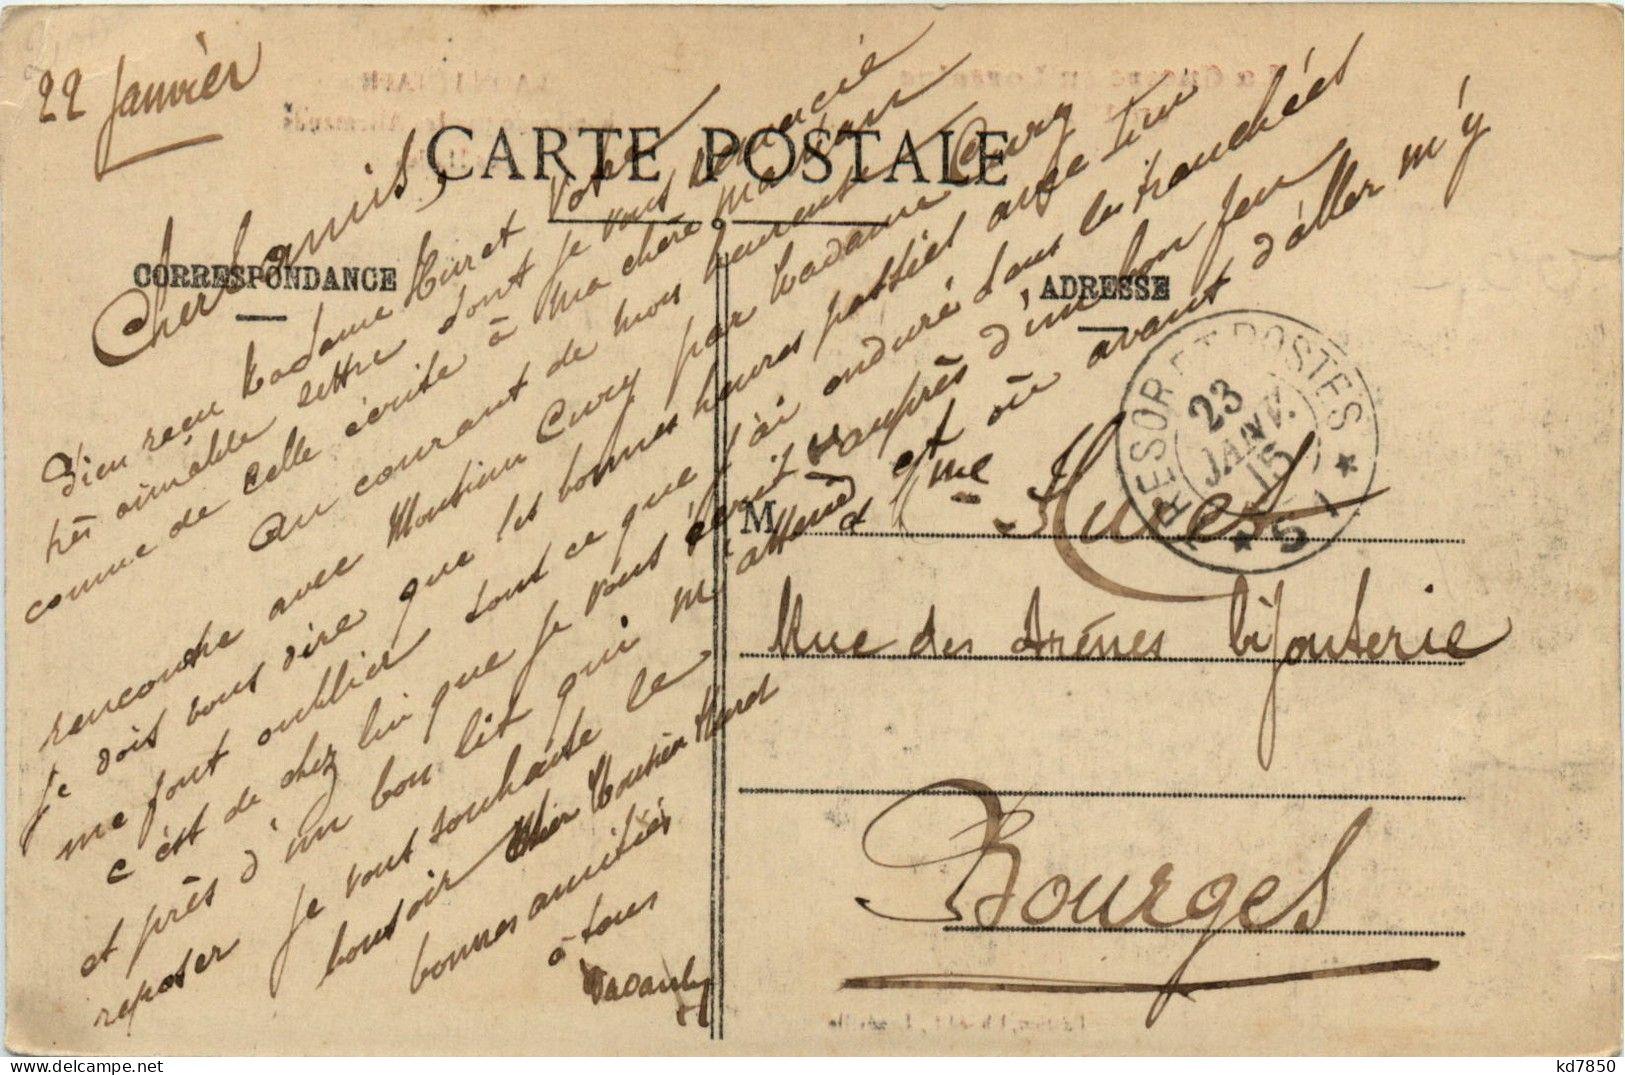 22 Janvier
CARTE POSTALE
CORRESPONDANCE
ADRESSE
Chers amis,
J'ai reçu Madame Huret votre
très aimable lettre dont je vous remercie
comme de celle écrite à ma chère maman
Au courant de mon heureuse
rencontre avec Monsieur Cury par Madame Cury
je dois vous dire que les bonnes heures passées avec lui
me font oublier tout ce que j'ai enduré dans les tranchées
c'est de chez lui que je vous écris auprès d'un bon feu
et près d'un bon lit qui m'attend et où avant d'aller m'y
reposer je vous souhaite le
bonsoir Cher Monsieur Huret
bonnes amitiés
à tous
TRESOR ET POSTES
23
JANV.
15
* 51 *
M et Mme Huret
Rue des Arènes bijouterie
Bourges
kd7850